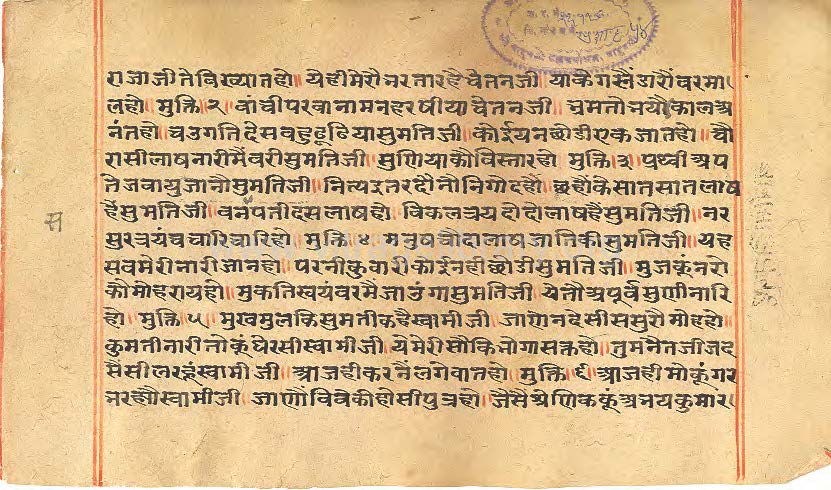 राजाजीतेविख्यातहो॥ येहीमेरौनरतारहैचेतनजी॥ याकेगलैडारौंवरमा
लहो॥ मुक्ति २॥ वांचीपरवानामनहरषीयाचेतनजी॥ भ्रमतोभयोकालअ
नंतहो॥ चउगतिदेसवहुढूढियासुमतिजी॥ कोईयनछोडीएकजातहो॥ चौ
रासीलाषनारीमैंवरीसुमतिजी॥ सुणियाकौविस्तारहो॥ मुक्ति ३॥ पृथ्वीअप
तेजवायुजानौसुमतिजी॥ नित्यइतरदौनौनिगोदहौ॥ छहौंकेसातसातलाष
हैंसुमतिजी॥ वनंपतीदसलाषहो॥ विकलत्रयदोदोलाषहैंसुमतिजी॥ नर
सुरत्रयंचचारिचारिहो॥ मुक्ति ४॥ मनुषचौदालाषजातिकीसुमतिजी॥ यह
सवमेरीनारीजानहो॥ परनीकुवारीकोईनहीछोडीसुमतिजी॥ मुजकूंनरो
कौमोहरायहो॥ मुकतिस्वयंवरमैंजाउंगासुमतिजी॥ येतौअपूर्वसुणीनारि
हो॥ मुक्ति ५॥ मुखमुलकिसुमतीकहैस्वामीजी॥ जाणेनदैसीससुरौमोहहो॥
कुमतीनारीतोकूंघेरसीस्वामीजी॥ येमेरीसौकिभोगासक्तहो॥ तुमनैतजीजद
मैंसीलरहूंस्वामीजी॥ आजहीकरनैलगेवातहो॥ मुक्ति ६॥ आजहीमोकूंगर
भरह्यौस्वामीजी॥ जाणौंविवेकीहोसीपुत्रहो॥ जैसैश्रेणिककूंअभयकुमार।